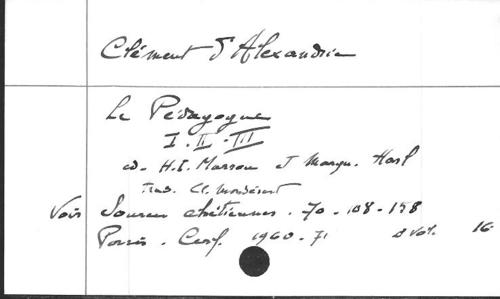 Clément d'Alexandrie
Le Pédagogue
I. II. III
ed. H.I. Marrou et Margu. Harl
Trad. Cl. Mondésert
Voir Sources chrétiennes. 70-108-158
Paris. Cerf. 1960-71 vol. 16